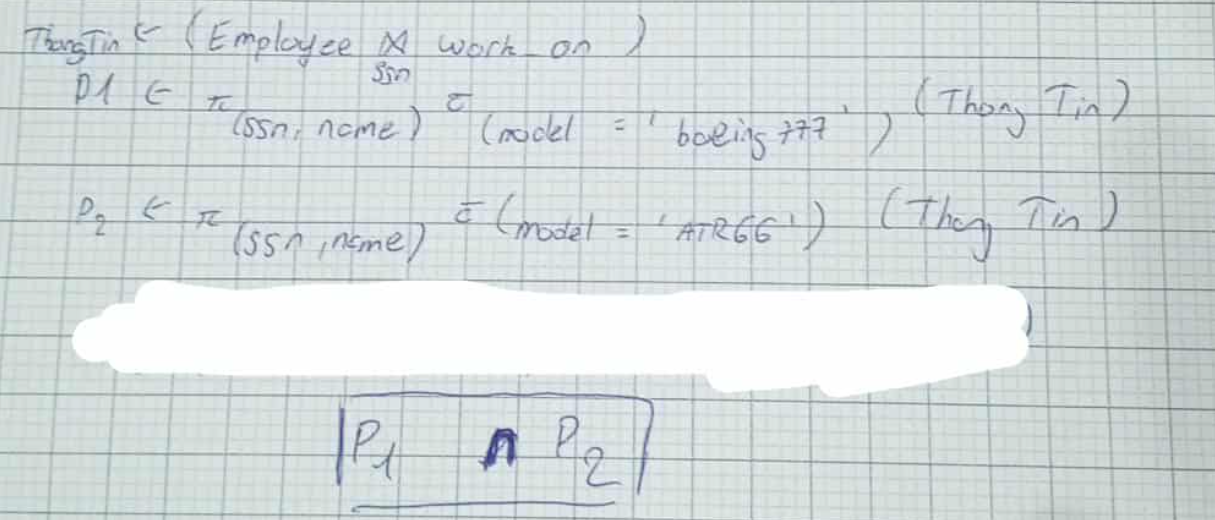 ThongTin ← (Employee ⋈ work_on)
ssn
P1 ← π (ssn, name) σ (model = 'boeing 777') (Thong Tin)
P2 ← π (ssn, name) σ (model = 'ATR66') (Thong Tin)
P1 ∩ P2